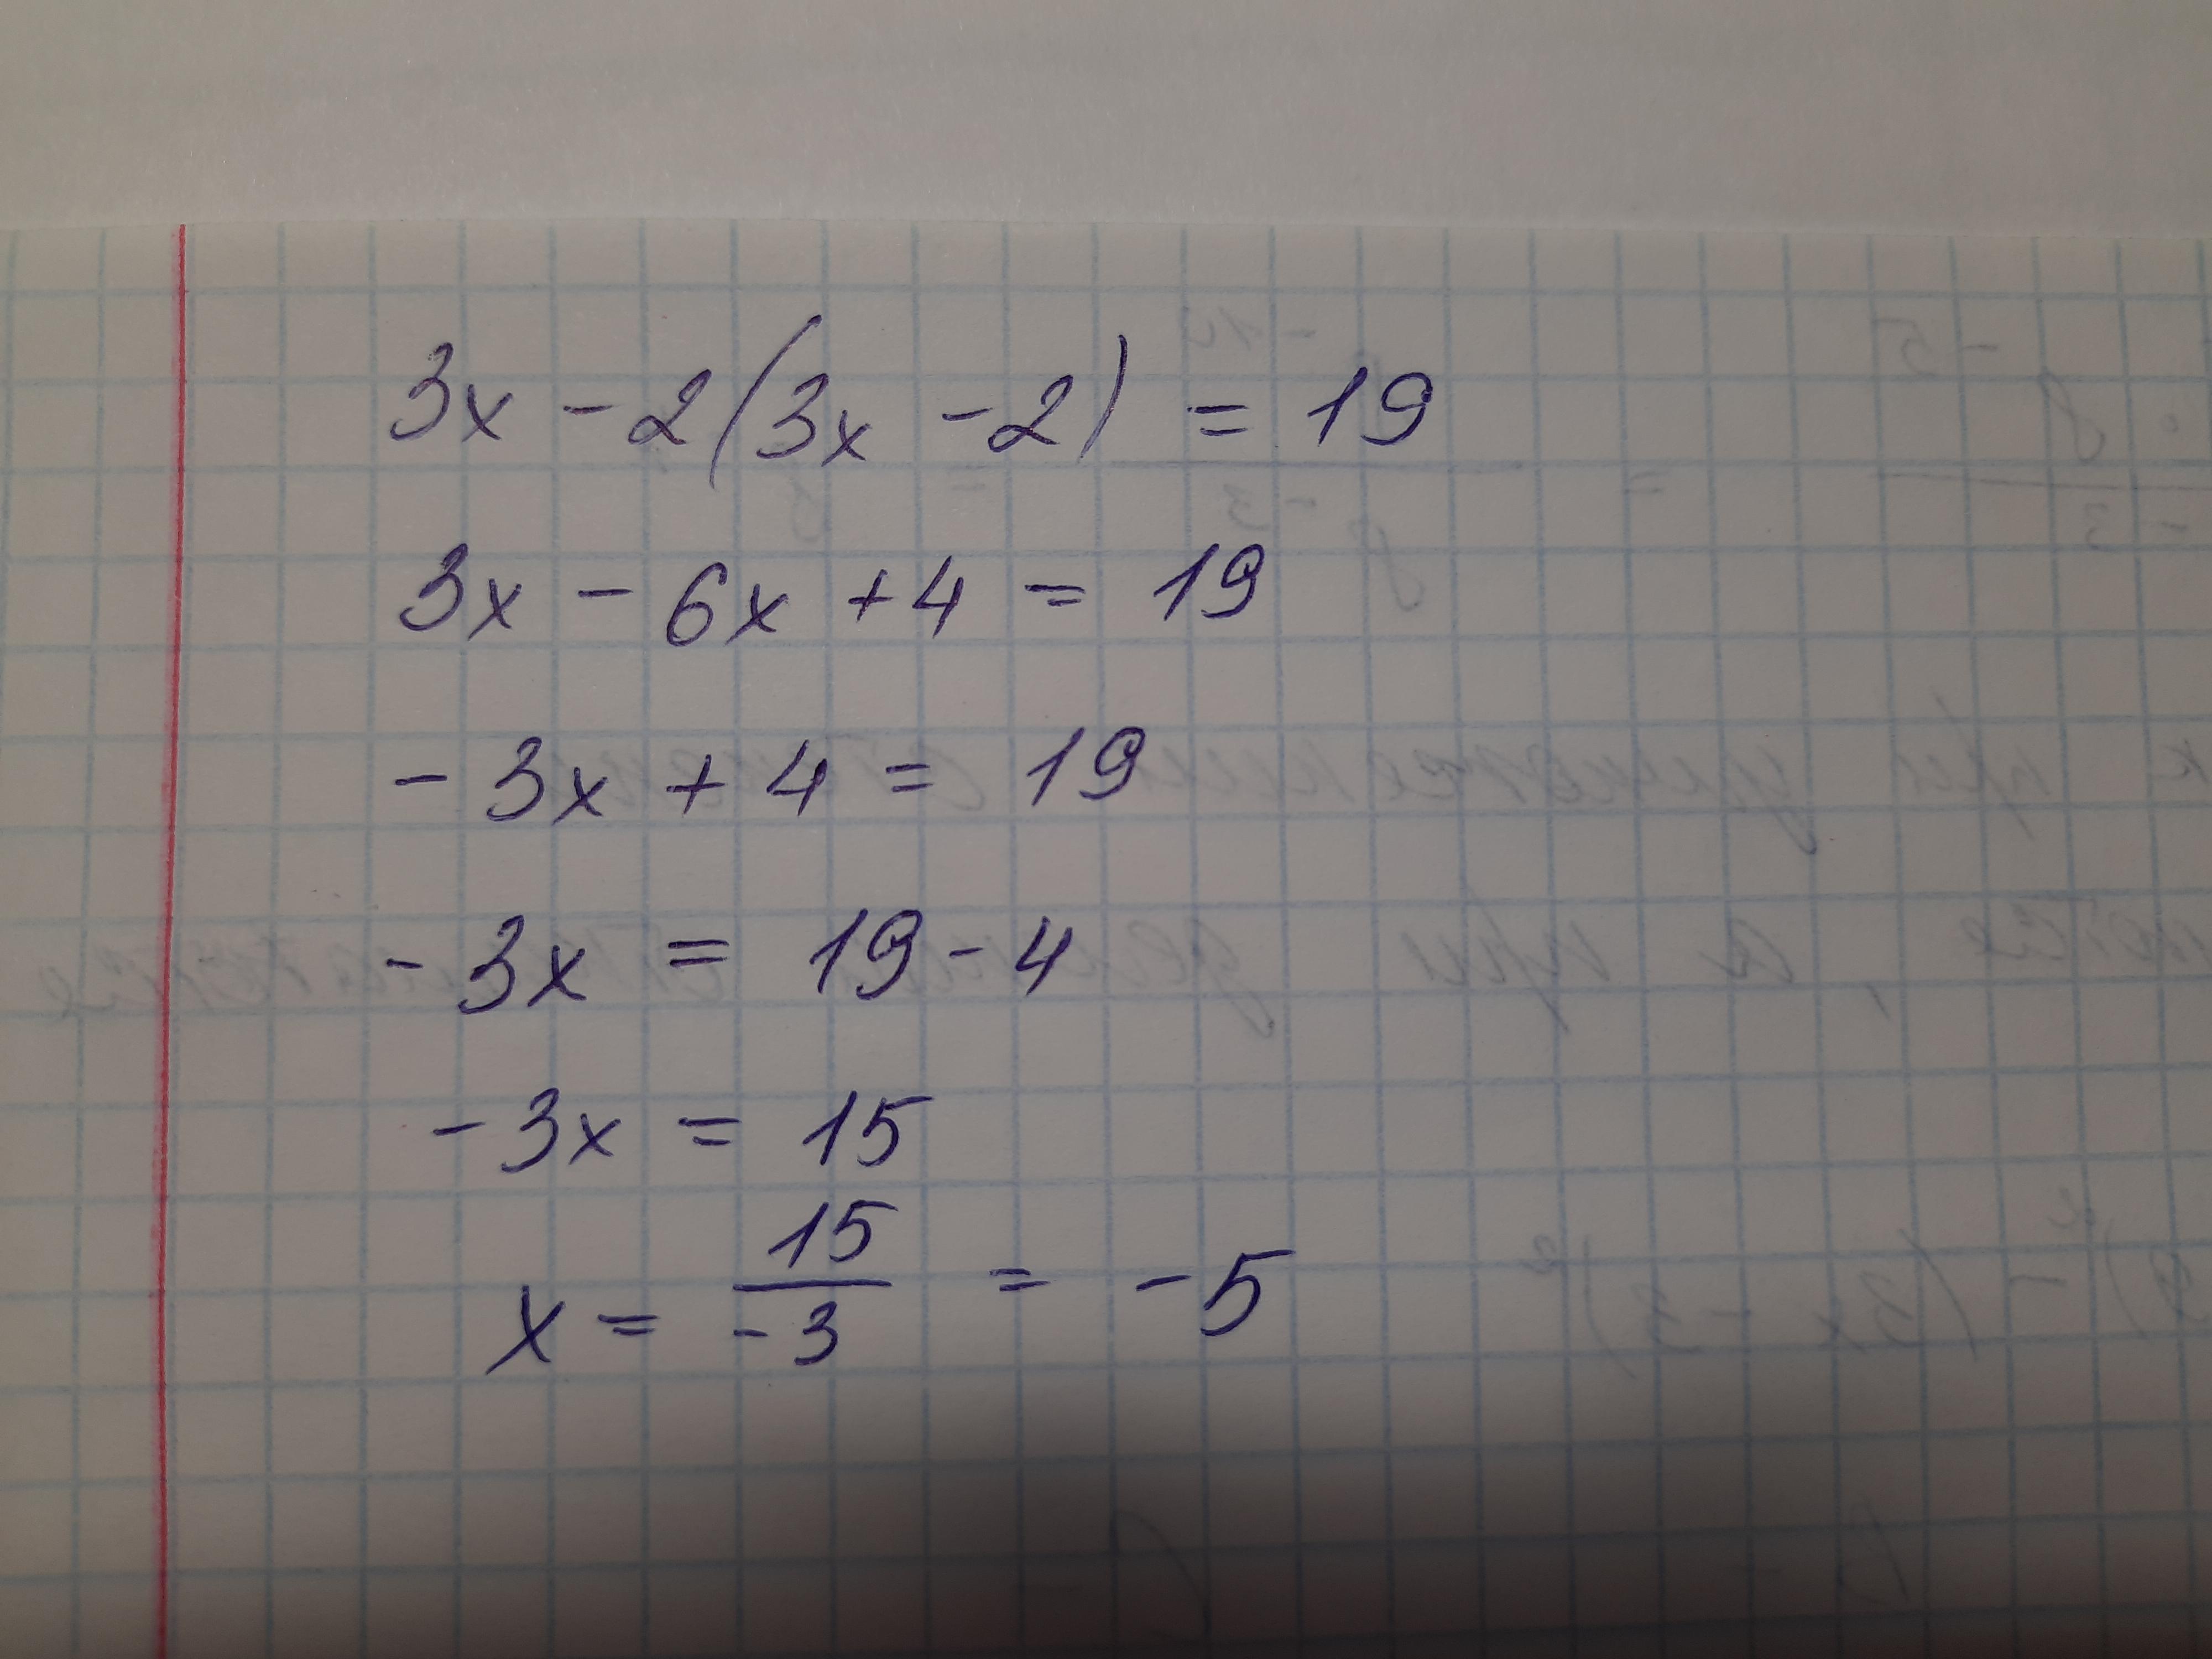 3x - 2(3x - 2) = 19
3x - 6x + 4 = 19
- 3x + 4 = 19
- 3x = 19 - 4
- 3x = 15
x = 15/-3 = -5